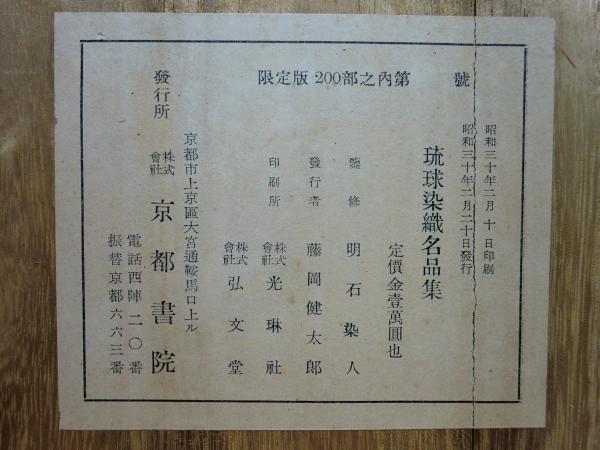 限定版 200部之內第　　號
昭和三十年二月 十 日印刷
昭和三十年二月二十日發行
琉球染織名品集
定價金壹萬圓也
監修 明石染人
發行者 藤岡健太郎
印刷所 株式會社 光琳社
株式會社 弘文堂
京都市上京區大宮通鞍馬口上ル
發行所 株式會社 京都書院
電話西陣 二〇番
振替京都六六三番